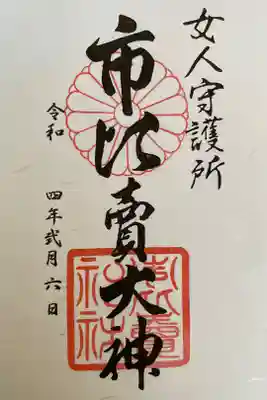 女人守護所
市比賣大神
令和
四年弐月六日